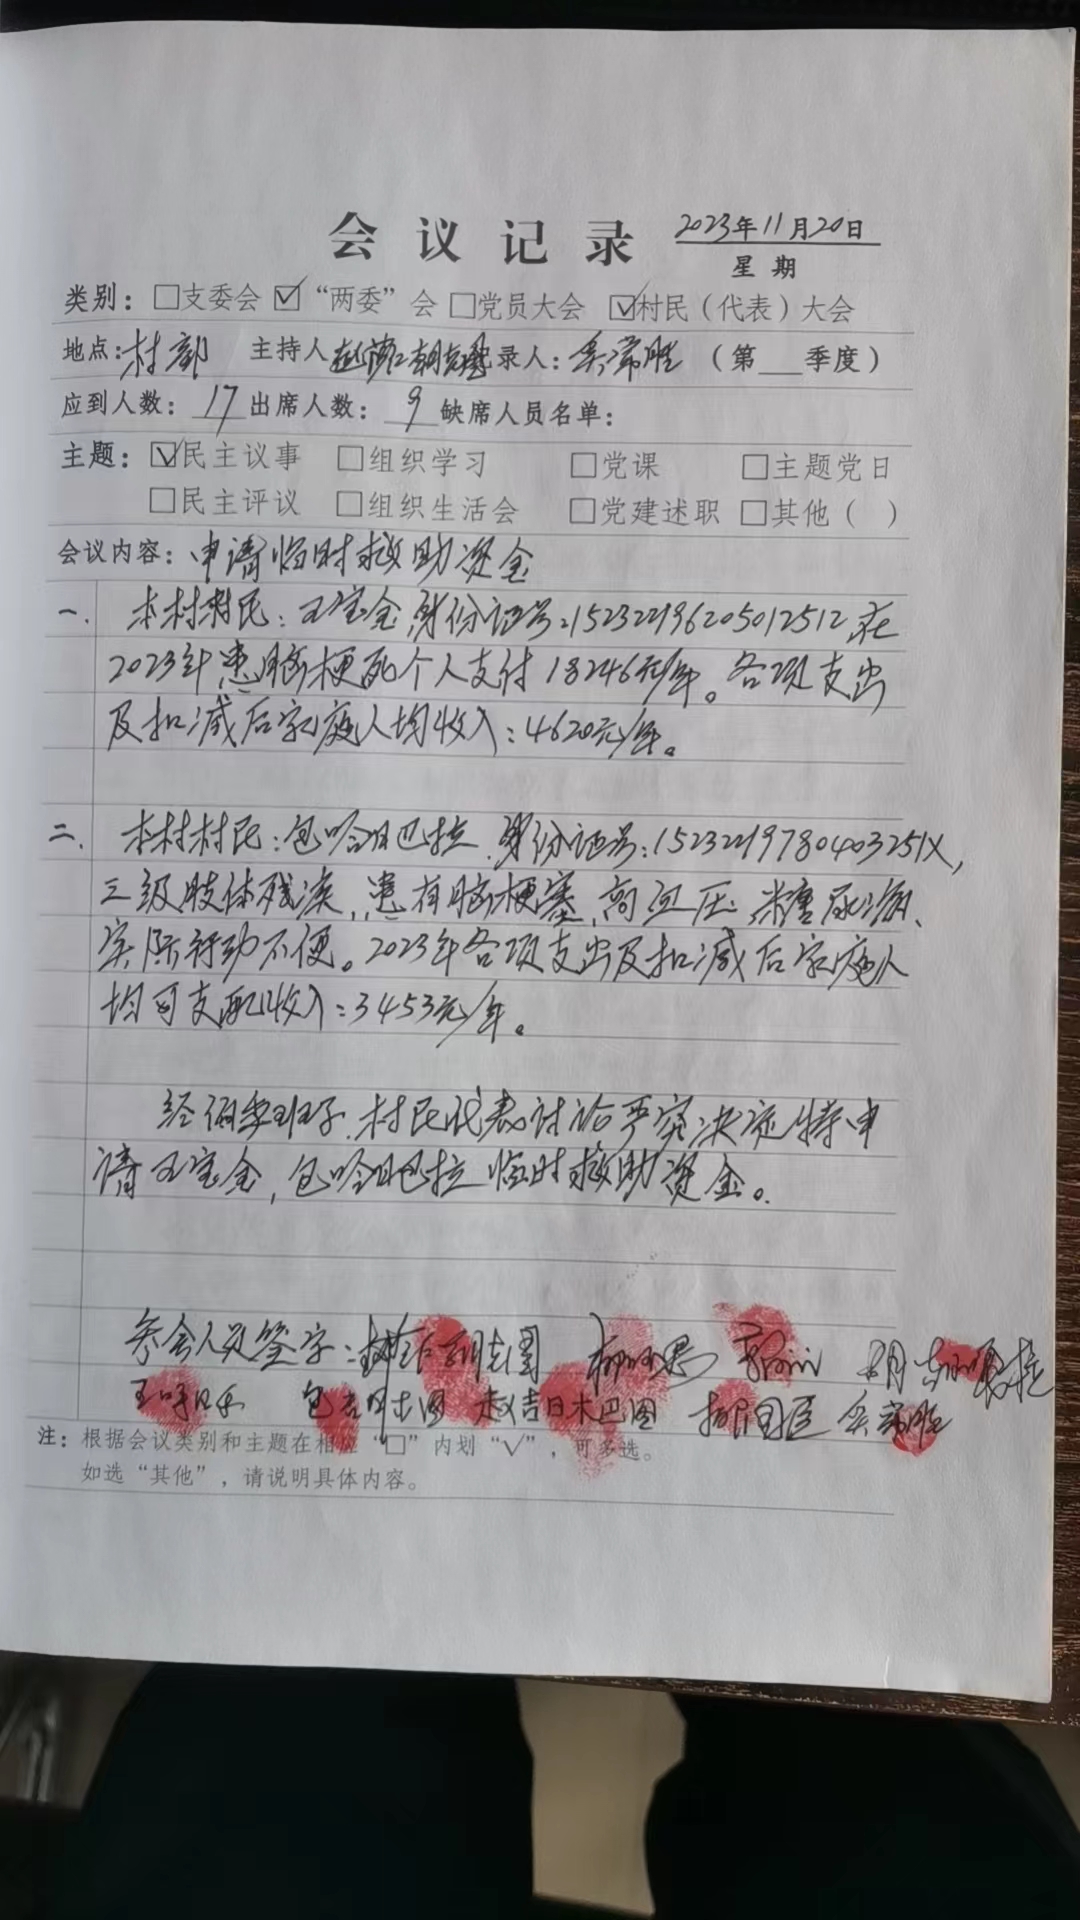 会议记录 2023年11月20日
星期
类别：□支委会 ☑“两委”会 □党员大会 ☑村民（代表）大会
地点：村部 主持人 录人：吴常胜 （第 季度）
应到人数：17 出席人数：9 缺席人员名单：
主题：☑民主议事 □组织学习 □党课 □主题党日
□民主评议 □组织生活会 □党建述职 □其他（ ）
会议内容：申请临时救助资金
一. 本村村民：王宝金,身份证号:152322196205012512,在
2023年患脑梗死个人支付18246元/年。各项支出
及扣减后家庭人均收入：4620元/年。
二. 本村村民：包哈日巴拉,身份证号:15232219780403251X,
三级肢体残疾,患有脑梗塞,高血压,糖尿病、
实际行动不便。2023年各项支出及扣减后家庭人
均可支配收入：3453元/年。
经 班子,村民代表讨论 决定特申
请王宝金,包哈日巴拉临时救助资金。
参会人员签字：
包吉日木图 赵吉日木巴图 吴常胜
注：根据会议类别和主题在相应“□”内划“√”，可多选。
如选“其他”，请说明具体内容。